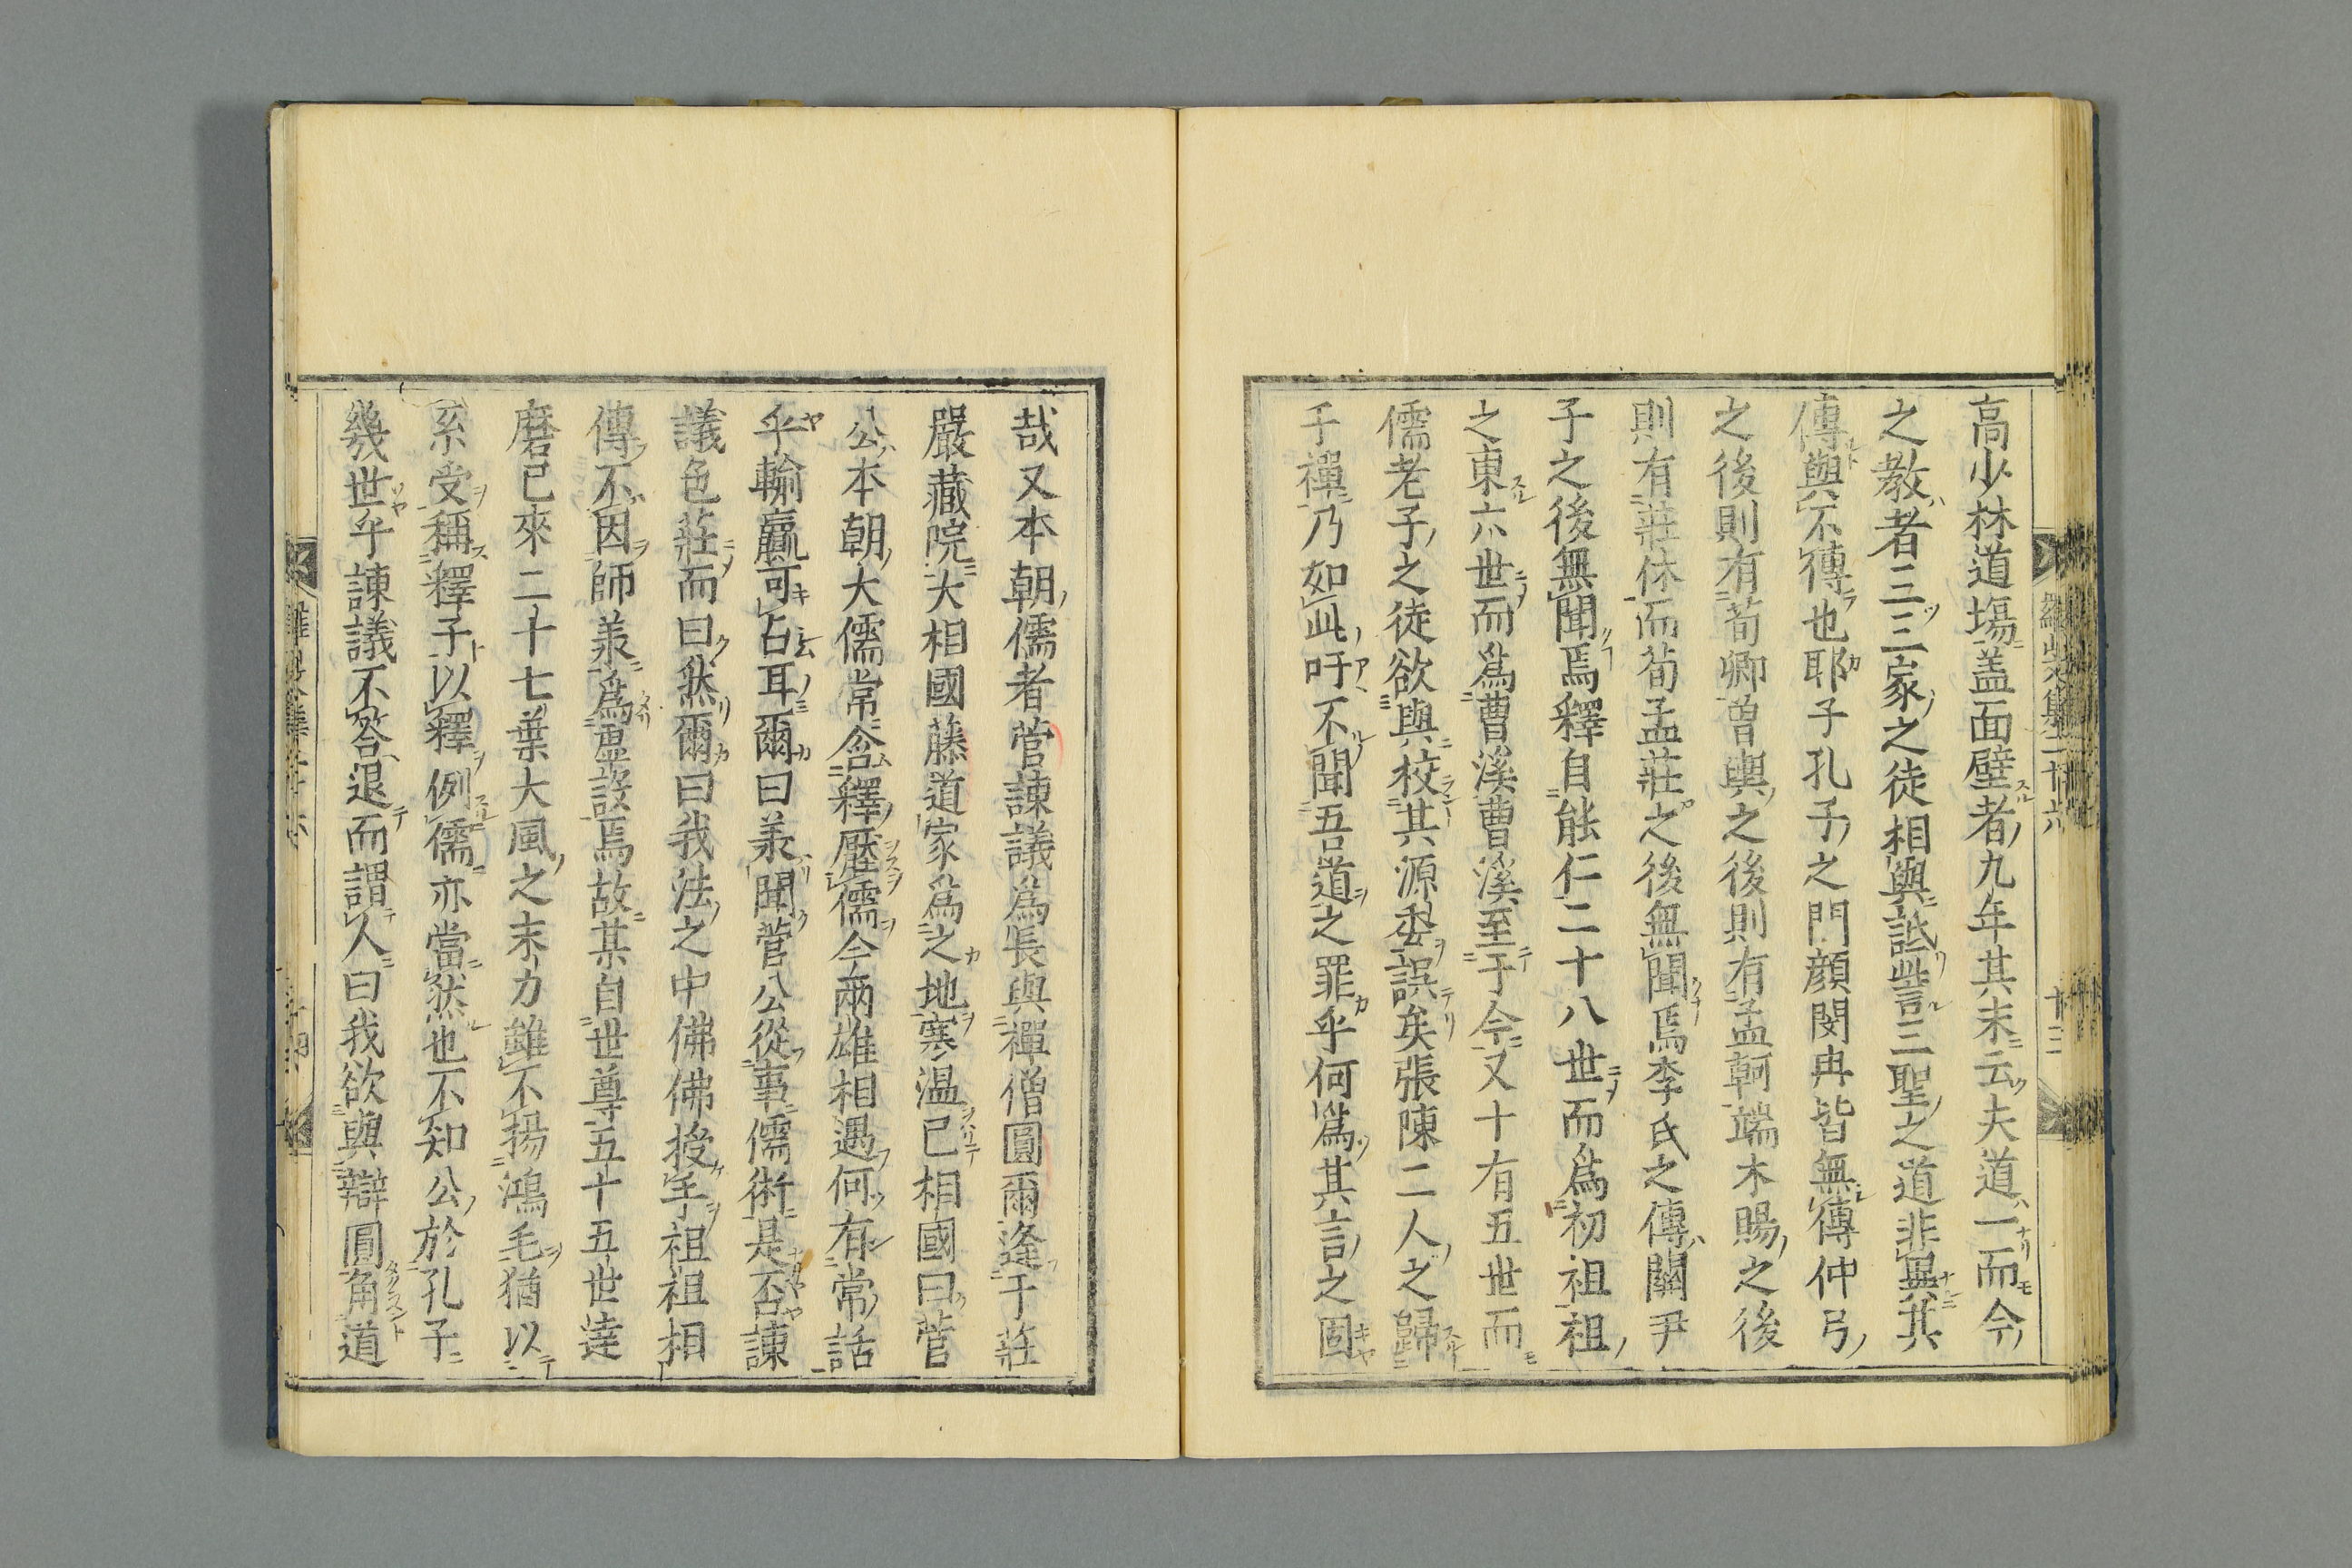 高少林道塲盖面壁者九年其末云夫道一而今
之教者三三家之徒相與詆訾三聖之道非異其
傳與不傳也耶子孔子之門顔閔冉皆無傳仲弓
之後則有荀卿曽輿之後則有孟軻端木賜之後
則有莊休而荀孟莊之後無聞焉李氏之傳關尹
子之後無聞焉釋自能仁二十八世而爲初祖祖
之東六世而爲曹溪曹溪至于今又十有五世而
儒老子之徒欲與挍其源委誤矣張陳二人之歸
于禪乃如此吁不聞吾道之罪乎何爲其言之固
哉又本朝儒者菅諫議爲長與禪僧圓爾逢于莊
嚴藏院大相國藤道家爲之地寒温已相國曰菅
公本朝大儒常含釋壓儒今兩雄相遇何有常話
乎輸贏可占耳爾曰羕聞菅公從事儒術是否諫
議色莊而曰然爾曰我法之中佛佛授手祖祖相
傳不因師羕爲虚設焉故某自世尊五十五世達
磨已來二十七葉大風之末力雖不揚鴻毛猶以
系受稱釋子以釋例儒亦當然也不知公於孔子
幾世乎諫議不答退而謂人曰我欲與辯圓角道